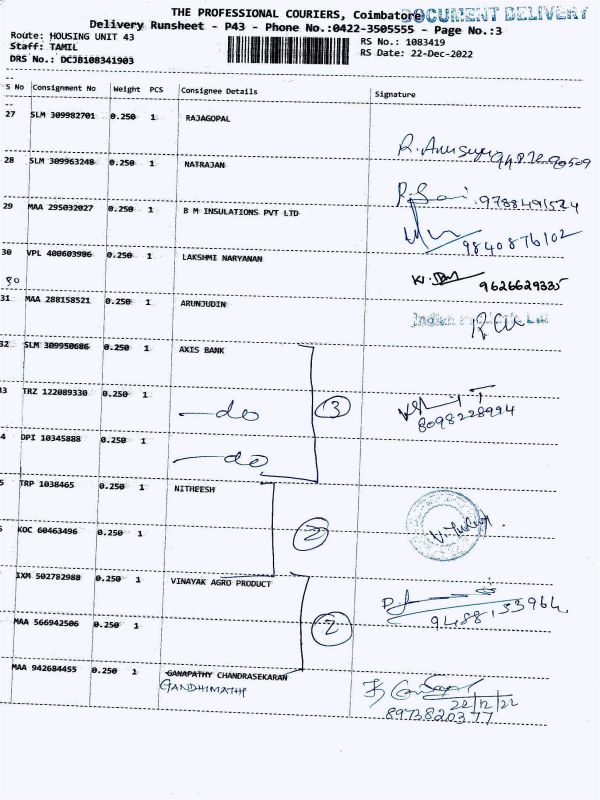 THE PROFESSIONAL COURIERS, Coimbatore
DOCUMENT DELIVERY
Delivery Runsheet - P43 - Phone No.:0422-3505555 - Page No.:3
Route: HOUSING UNIT 43
RS No.: 1083419
Staff: TAMIL
RS Date: 22-Dec-2022
DRS No.: DCJB108341903
S No Consignment No Weight PCS Consignee Details Signature
27 SLM 309982701 0.250 1 RAJAGOPAL
28 SLM 309963248 0.250 1 NATRAJAN
9788491524
29 MAA 295032027 0.250 1 B M INSULATIONS PVT LTD
9840876102
30 VPL 400603986 0.250 1 LAKSHMI NARYANAN
80
9626629335
31 MAA 288158521 0.250 1 ARUNJUDIN
32 SLM 309950686 0.250 1 AXIS BANK
33 TRZ 122089330 0.250 1 —do 3
8098228994
4 DPI 10345888 0.250 1 —do
5 TRP 1038465 0.250 1 NITHEESH
KOC 60463496 0.250 1 2
IXM 502782988 0.250 1 VINAYAK AGRO PRODUCT
9488133964
MAA 566942506 0.250 1 2
MAA 942684455 0.250 1 GANAPATHY CHANDRASEKARAN
GANDHIMATHI
22/12/22
8973820377